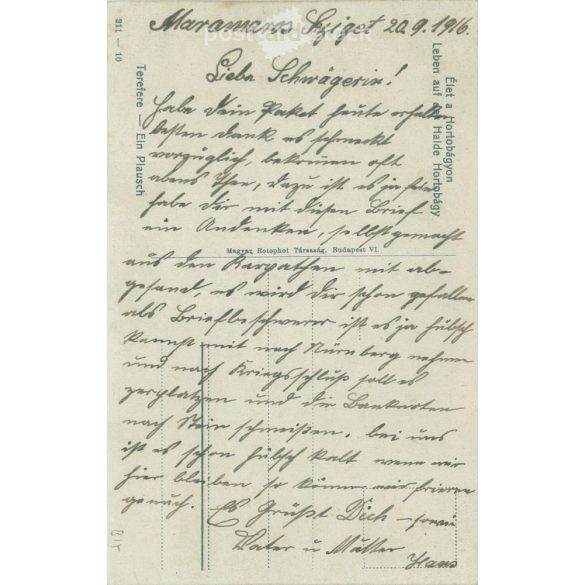 Maramaros Sziget 20.9.1916.
Liebe Schwägerin!
Habe dein Paket heute erhalten
besten Dank es schmeckt
vorzüglich, bekommen oft
abens Thee, dazu ist es ja fein
habe dir mit diesen Brief
ein Andenken, selbstgemacht
aus den Karpathen mit ab-
gesand, es wird dir schon gefallen
als Briefbeschwerer ist es ja hübsch
kannst mit nach Nürnberg nehmen
und nach Kriegsschluß soll es
zerplatzen und die Banknoten
nach Stein schmeißen, bei uns
ist es schon hübsch kalt wenn wir
hier bleiben so können wir frieren
genuch. Es Grüßt Dich sowie
Vater u Mutter
Hans
211 — 10
Terefere — Ein Plausch
Élet a Hortobágyon
Leben auf Halde Hortobágy
Magyar Rotophot Társaság, Budapest VI.
postcardstock